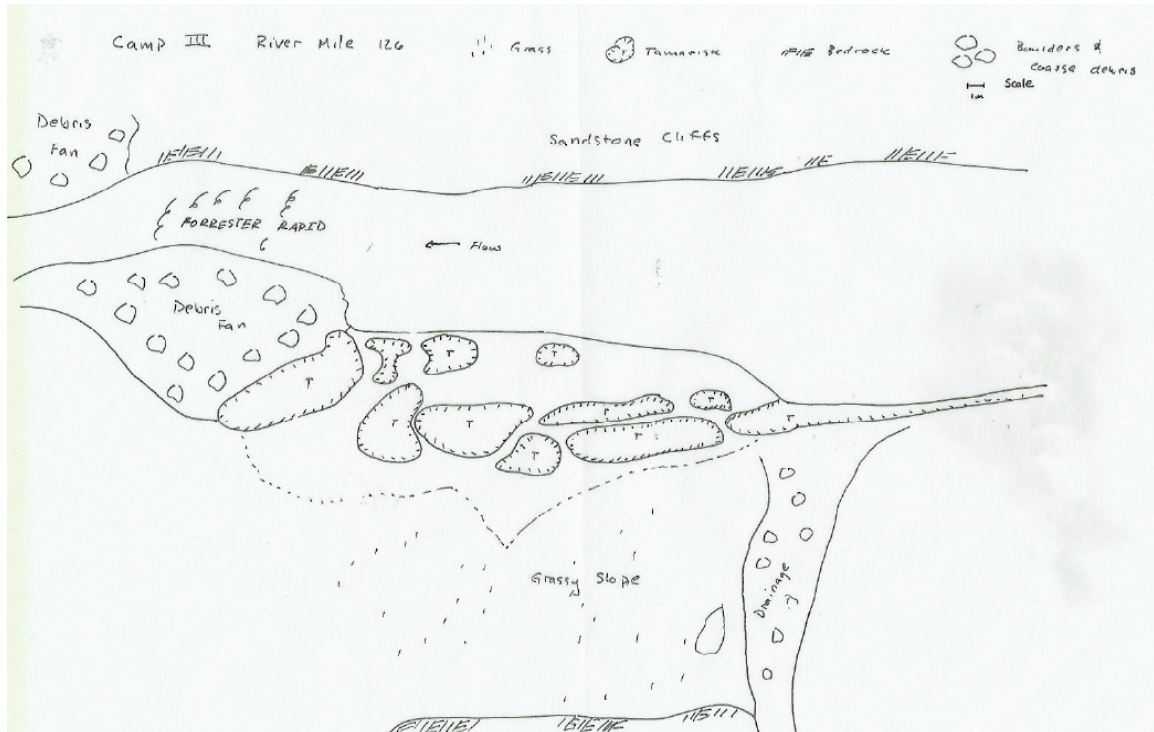 Camp III River Mile 126
Grass
Tamarisk
Bedrock
Boulders &
coarse debris
Scale
1m
Debris
Fan
Sandstone Cliffs
FORRESTER RAPID
← Flow
Debris
Fan
T
T
T
T
T
T
T
T
T
T
Grassy Slope
Drainage